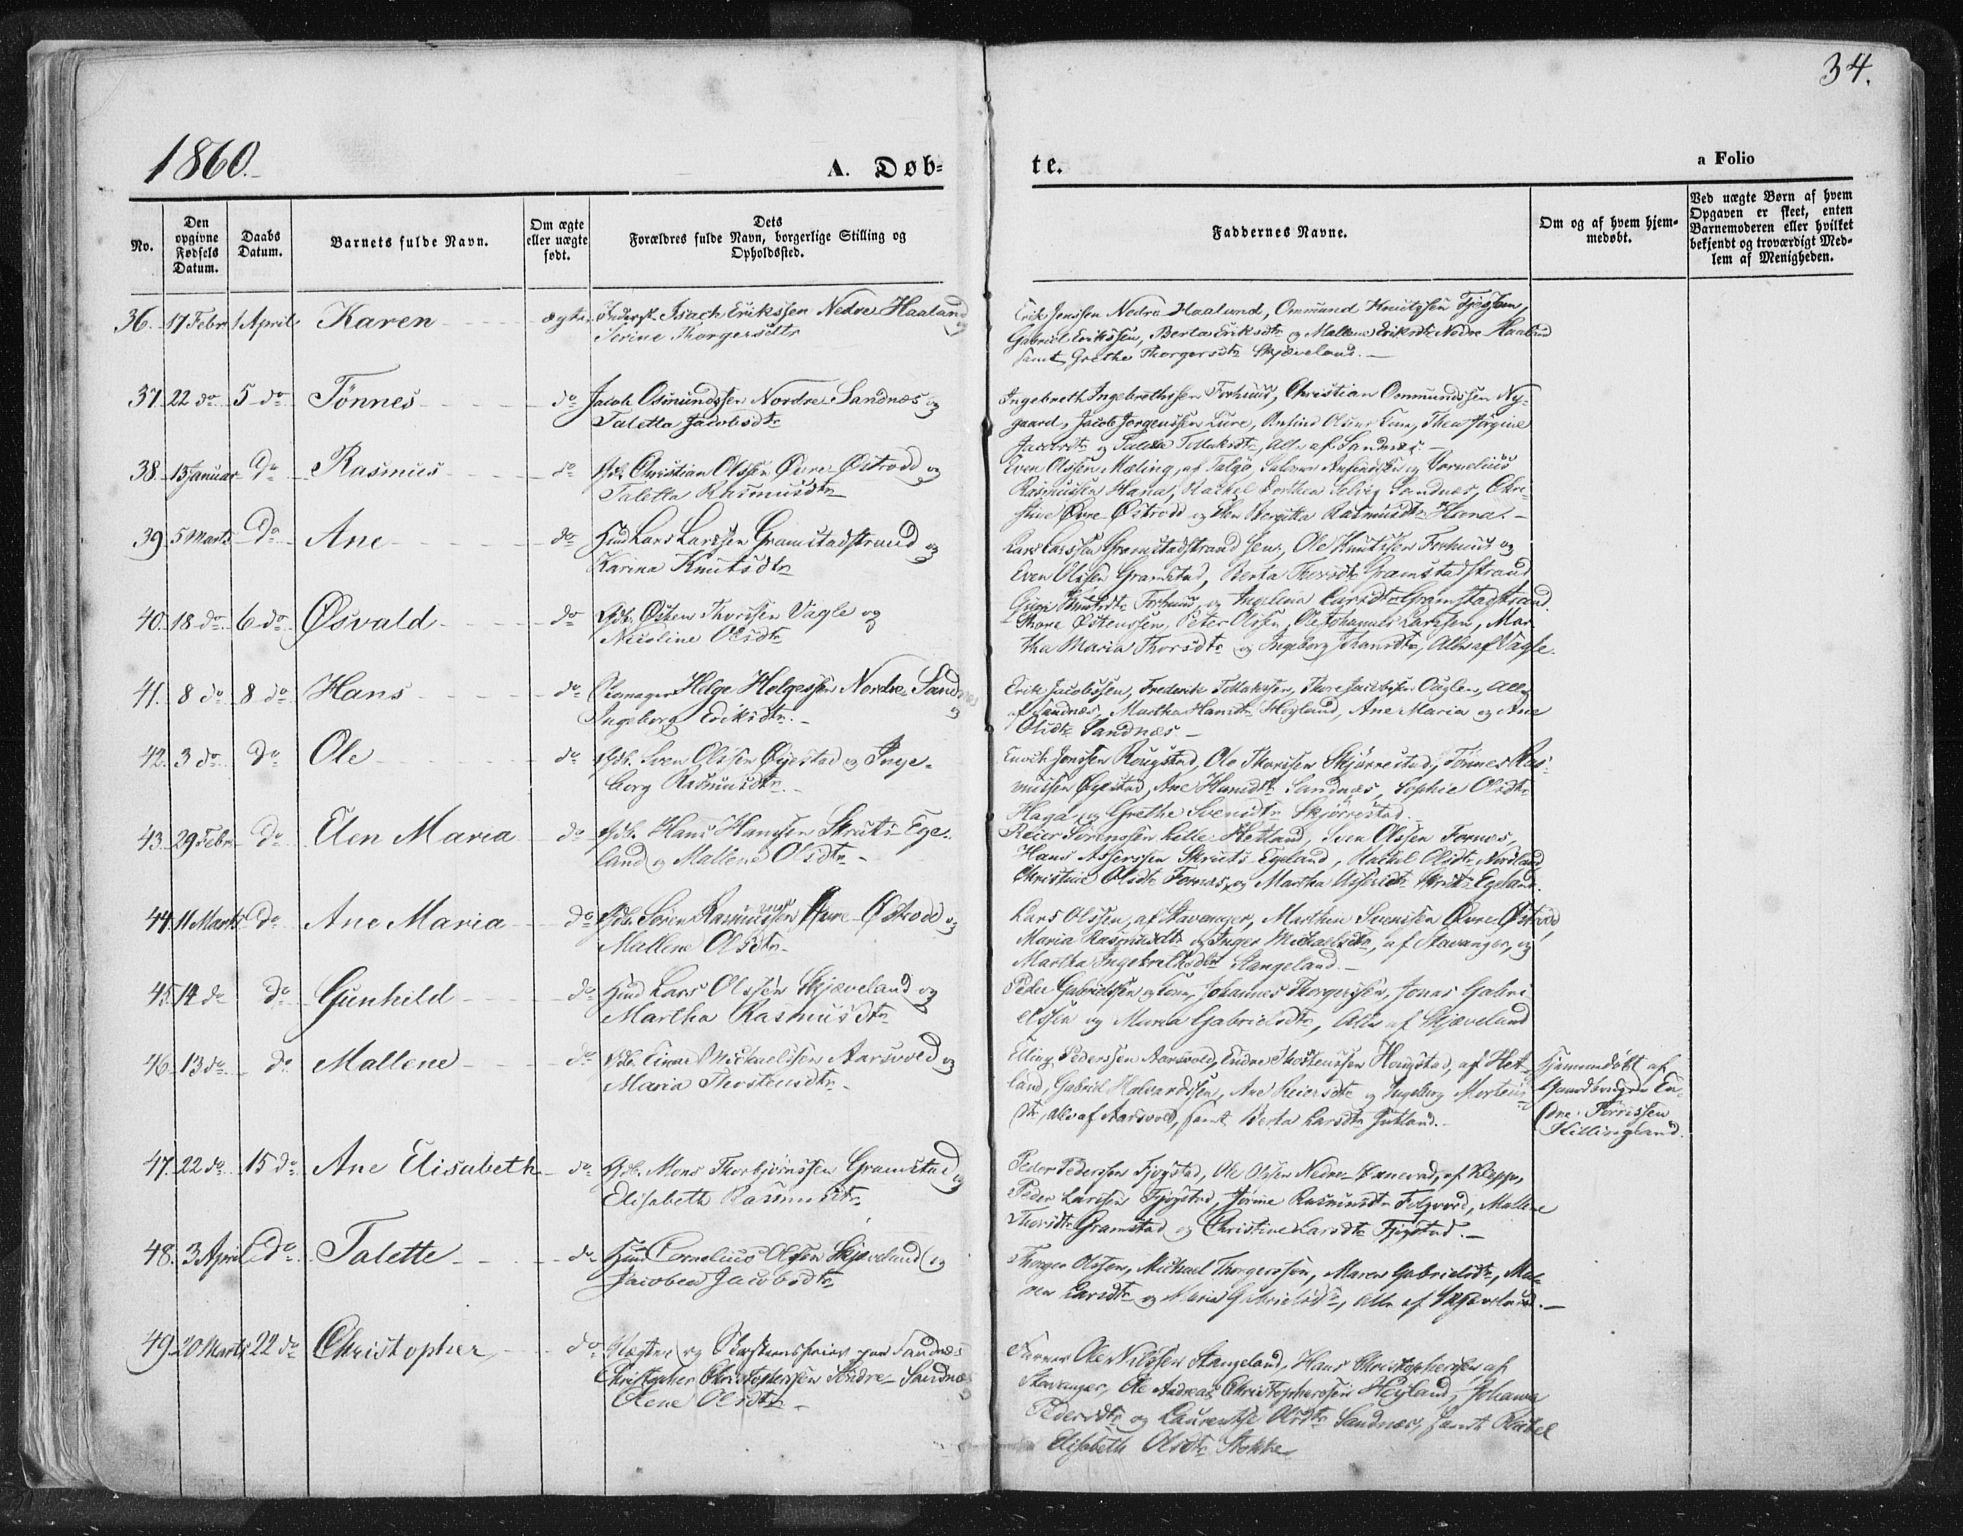 34.
1860.
A. Døb-
te.
a Folio
No.
Den
opgivne
Fødsels
Datum.
Daabs
Datum.
Barnets fulde Navn.
Om ægte
eller uægte
født.
Dets
Forældres fulde Navn, borgerlige Stilling og
Opholdssted.
Faddernes Navne.
Om og af hvem hjem-
medøbt.
Ved uægte Børn af hvem
Opgaven er skeet, enten
Barnemoderen eller hvilket
bekjendt og troværdigt Med-
lem af Menigheden.
36. 17 Febr 1 April Karen ægte Isach Erikssen Nedre Haaland
og
Serine Thorgersdtr
Erik Jenssen Nedre Haaland, Ommund
Gabriel Erikssen, Berta Eriksdtr og Mallene Eriksdtr Nedre Haaland
samt Grethe Thorgersdtr Skjæveland.
37. 22 do 5 do Tönnes do Jacob Osmundssen Nordre Sandnæs og
Taletta Jacobsdtr
Ingebreth Ingebrethssen Forhuus, Christian Ommundssen Ny-
gaard, Jacob Jørgenssen Lure,
Jacobsdtr og Tollaksdtr, Alle af Sandnæs.
38. 13 Januar do Rasmus do Gdb. Christian Olssen Øvre Østraad og
Taletta Rasmusdtr
Even Olssen Maling, af Talgø, og Cornelius
Rasmussen Hana, Rachel Dorthea Selvig Sandnæs, Chri-
stine Øvre Østraad og Bergitta Rasmusdtr Hana.
39. 5 Marts do Ane do Huusmand Lars Larssen Gramstadstrand og
Karina Knutsdtr
Lars Larssen Gramstadstrand Sen., Ole Knutssen Forhuus og
Even Olssen Gramstad, Berta Thorsdtr Gramstadstrand
Guri Knutsdtr Forhuus, og Ingeleiv Larsdtr Gramstadstrand.
40. 18 do 6 do Øsvald do Gdb. Østen Thorssen Vagle og
Nicoline Olsdtr
Thore Østenssen, Peter Olssen, Ole Johannes Larssen, Mar-
tha Maria Thorsdtr og Ingeborg Hansdtr, Alle af Vagle.
41. 8 do 8 do Hans do Helge Helgessen Nordre Sandnæs
og
Ingeborg Eriksdtr.
Erik Jacobssen, Frederik Tollakssen, Thore Jacobssen Vaglen, Alle
af Sandnæs, Martha Hansdtr Høyland, Ane Maria og Ane
Olsdtr Sandnæs
42. 3 do do Ole do Gdb. Sven Olssen Øgestad og Inge-
borg Rasmusdtr.
Enoch Jonssen Rougstad, Ole Thorsen Skjørrestad, Tönnes Ras-
mussen Øgestad, Ane Hansdtr Sandnæs, Sophie Olsdtr
Haga, og Grethe Svensdtr Skjørrestad.
43. 29 Febr do Elen Maria do Gdb. Hans Hanssen Skruts Ege-
land og Mallene Olsdtr
Reier Sörenssen Lille Hetland, Sven Olssen Fornæs,
Hans Asserssen Skruts Egeland, Rachel Olsdtr Nordland,
Christine Olsdtr Fornæs, og Martha Assersdtr Skruts Egeland.
44. 11 Marts do Ane Maria do Gdb. Sören Rasmussen Øvre Østraad og
Mallene Olsdtr
Lars Olssen, af Stavanger, Marthin Svenssen Øvre Østraad,
Maria Rasmusdtr og Inger Michaelsdtr, af Stavanger, og
Martha Ingebrethsdtr Stangeland.
45. 14 do do Gunhild do Huusmand Lars Olssen Skjæveland og
Martha Rasmusdtr
Peder Gabrielssen og Kone, Johannes Thorgerssen, Jonas Gabri-
elssen og Maria Gabrielsdtr, Alle af Skjæveland
46. 13 do do Mallene do Gdb. Einar Michaelssen Aarsvold og
Maria Thorstensdtr
Elling Pederssen Aarsvold, Endre Thorstenssen Hougstad, af Het-
land, Gabriel Halvardssen, Ane Reiersdtr og Ingeborg Mortens-
dtr, alle af Aarsvold, samt Berta Larsdtr Jutland.
Hjemmedøbt af
Gaardbruger En-
dre Torrissen
Killingland.
47. 22 do 15 do Ane Elisabeth do Gdb. Mons Thorbjörnssen Gramstad
og
Elisabeth Rasmusdtr
Peder Pederssen Fjogstad, Ole Olssen Nedre af Klepp,
Peder Larssen Fjogstad, Rasmusdtr Mallene
Thorsdtr Gramstad og Christine Larsdtr Fjogstad.
48. 3 April do Talette do Huusmand Cornelius Olssen Skjæveland og
Jacobea Jacobsdtr
Thorger Olssen, Michael Thorgerssen, Maren Gabrielsdtr, Ma-
ren Larsdtr og Maria Gabrielsdtr, Alle af Skjæveland.
49. 20 Marts 22 do Christopher do paa Sandnæs
Christopher Christopherssen Søndre Sandnæs
Elene Olsdtr
Farver Ole Nilssen Stangeland, Hans Christopherssen af
Stavanger, Ole Andreas Christopherssen Høyland, Johanna
Pedersdtr og Laurentse Olsdtr Sandnæs, samt Rachel
Elisabeth Olsdtr Stokke